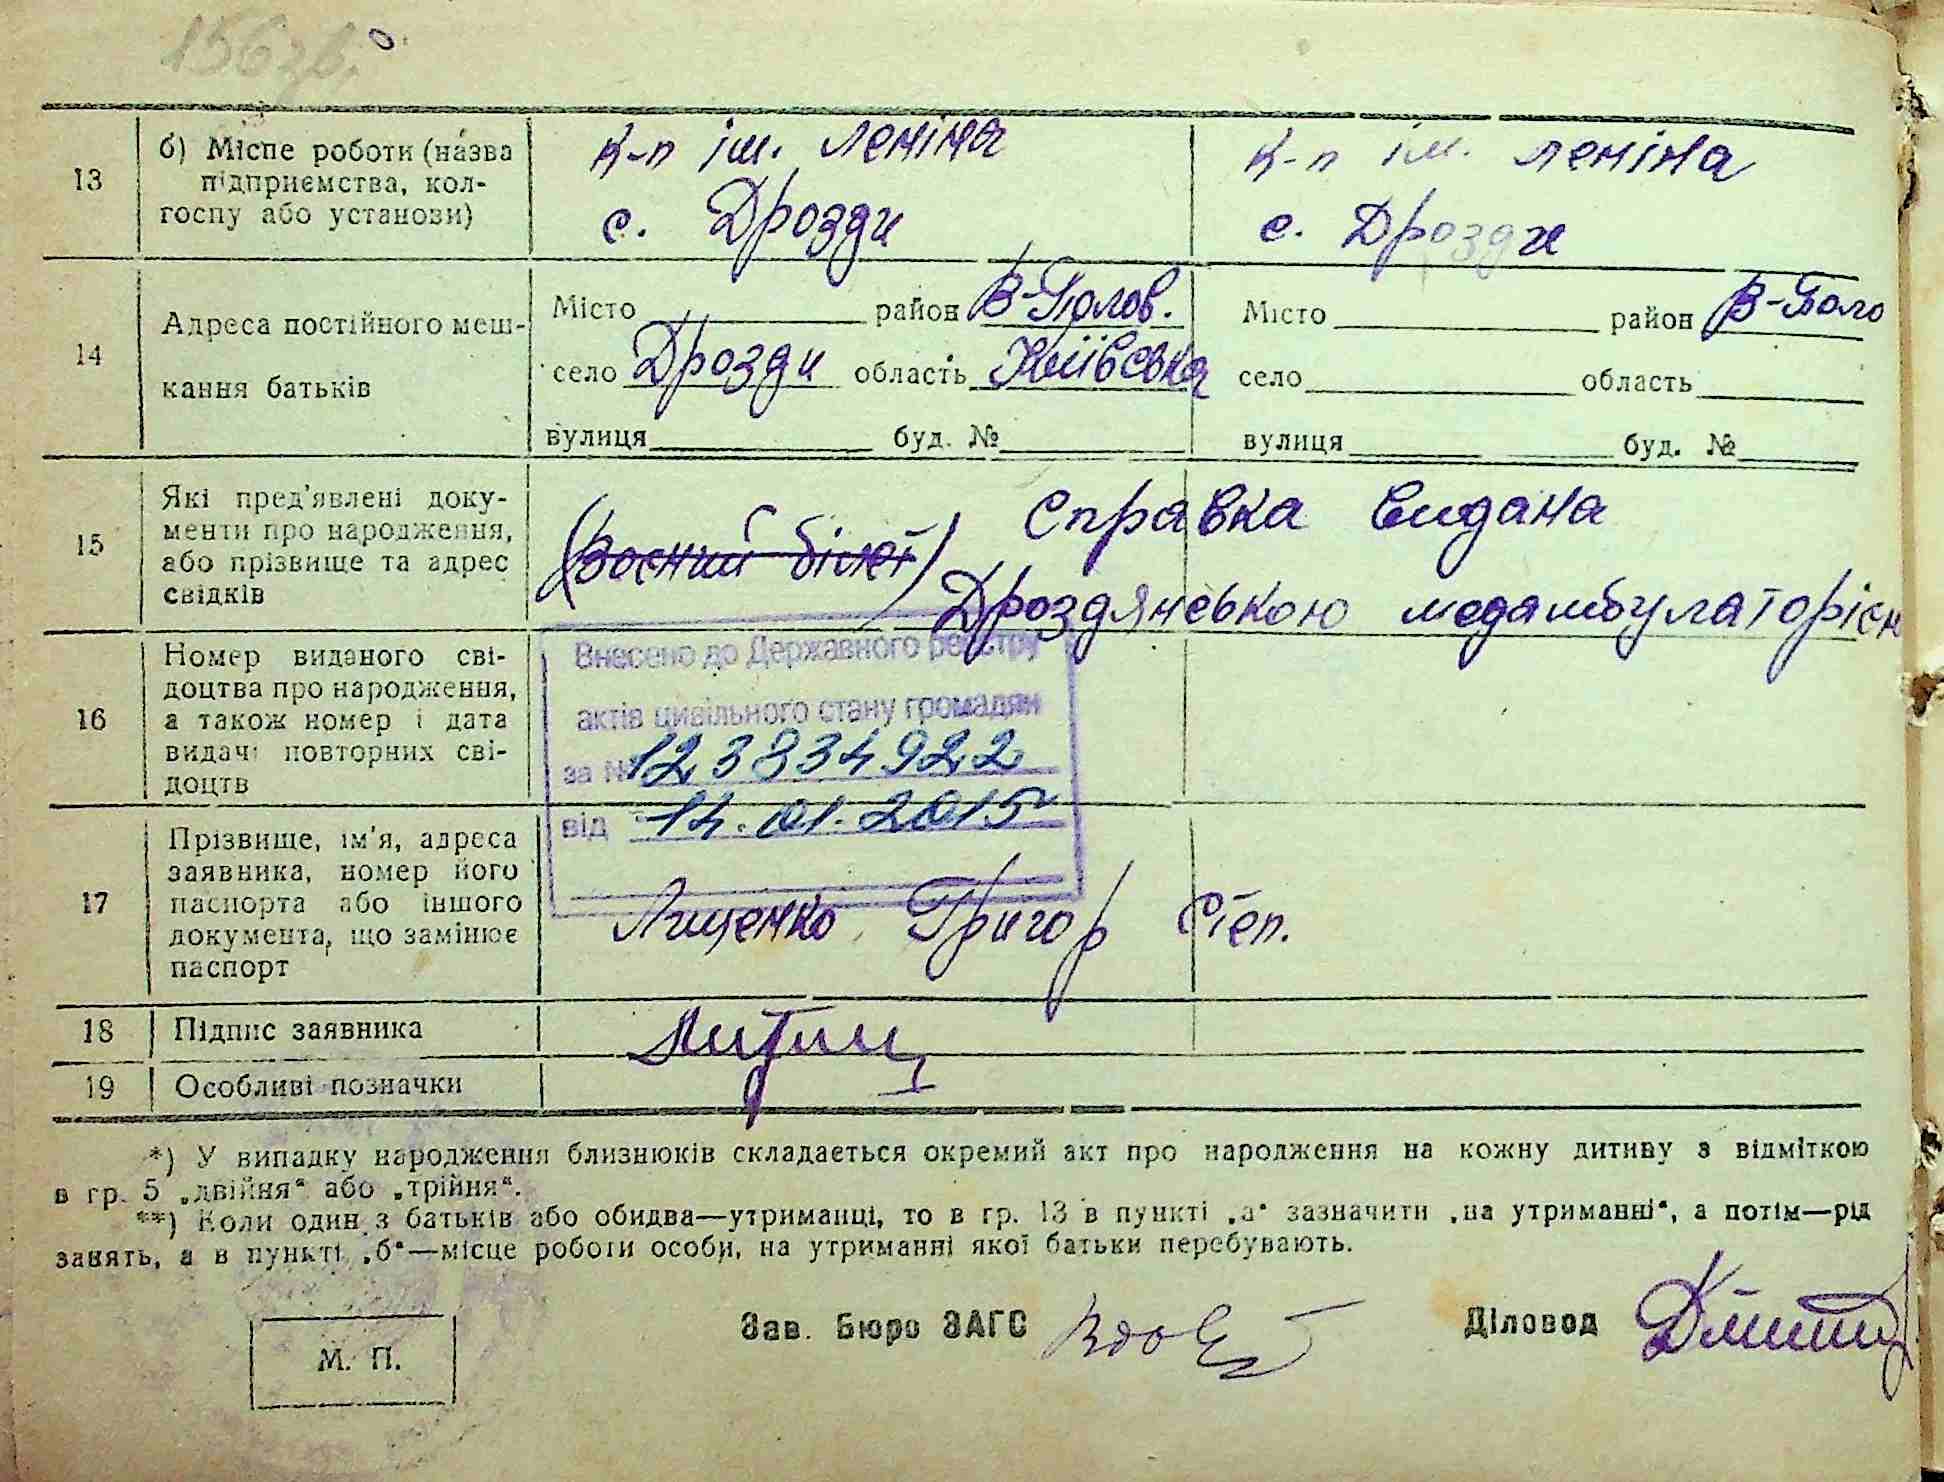 156зв.
13 б) Місце роботи (назва підприємства, колгоспу або установи)
к-п ім. Леніна
с. Дрозди
к-п ім. Леніна
с. Дрозди
14 Адреса постійного мешкання батьків
Місто район В-Полов.
село Дрозди область Київська
вулиця буд. №
Місто район В-Поло
село область
вулиця буд. №
15 Які пред'явлені документи про народження, або прізвище та адрес свідків
(Воєнний білет) Справка видана
Дроздянською медамбулаторією
16 Номер виданого свідоцтва про народження, а також номер і дата видачі повторних свідоцтв
Внесено до Державного реєстру
актів цивільного стану громадян
за № 123834922
від 14.01.2015
17 Прізвище, ім'я, адреса заявника, номер його паспорта або іншого документа, що замінює паспорт
Лищенко Григор Степ.
18 Підпис заявника
19 Особливі позначки
*) У випадку народження близнюків складається окремий акт про народження на кожну дитину з відміткою
в гр. 5 „двійня“ або „трійня“.
**) Коли один з батьків або обидва—утриманці, то в гр. 13 в пункті „а“ зазначити „на утриманні“, а потім—рід
занять, а в пункті „б“—місце роботи особи, на утриманні якої батьки перебувають.
Зав. Бюро ЗАГС
Діловод
М. П.